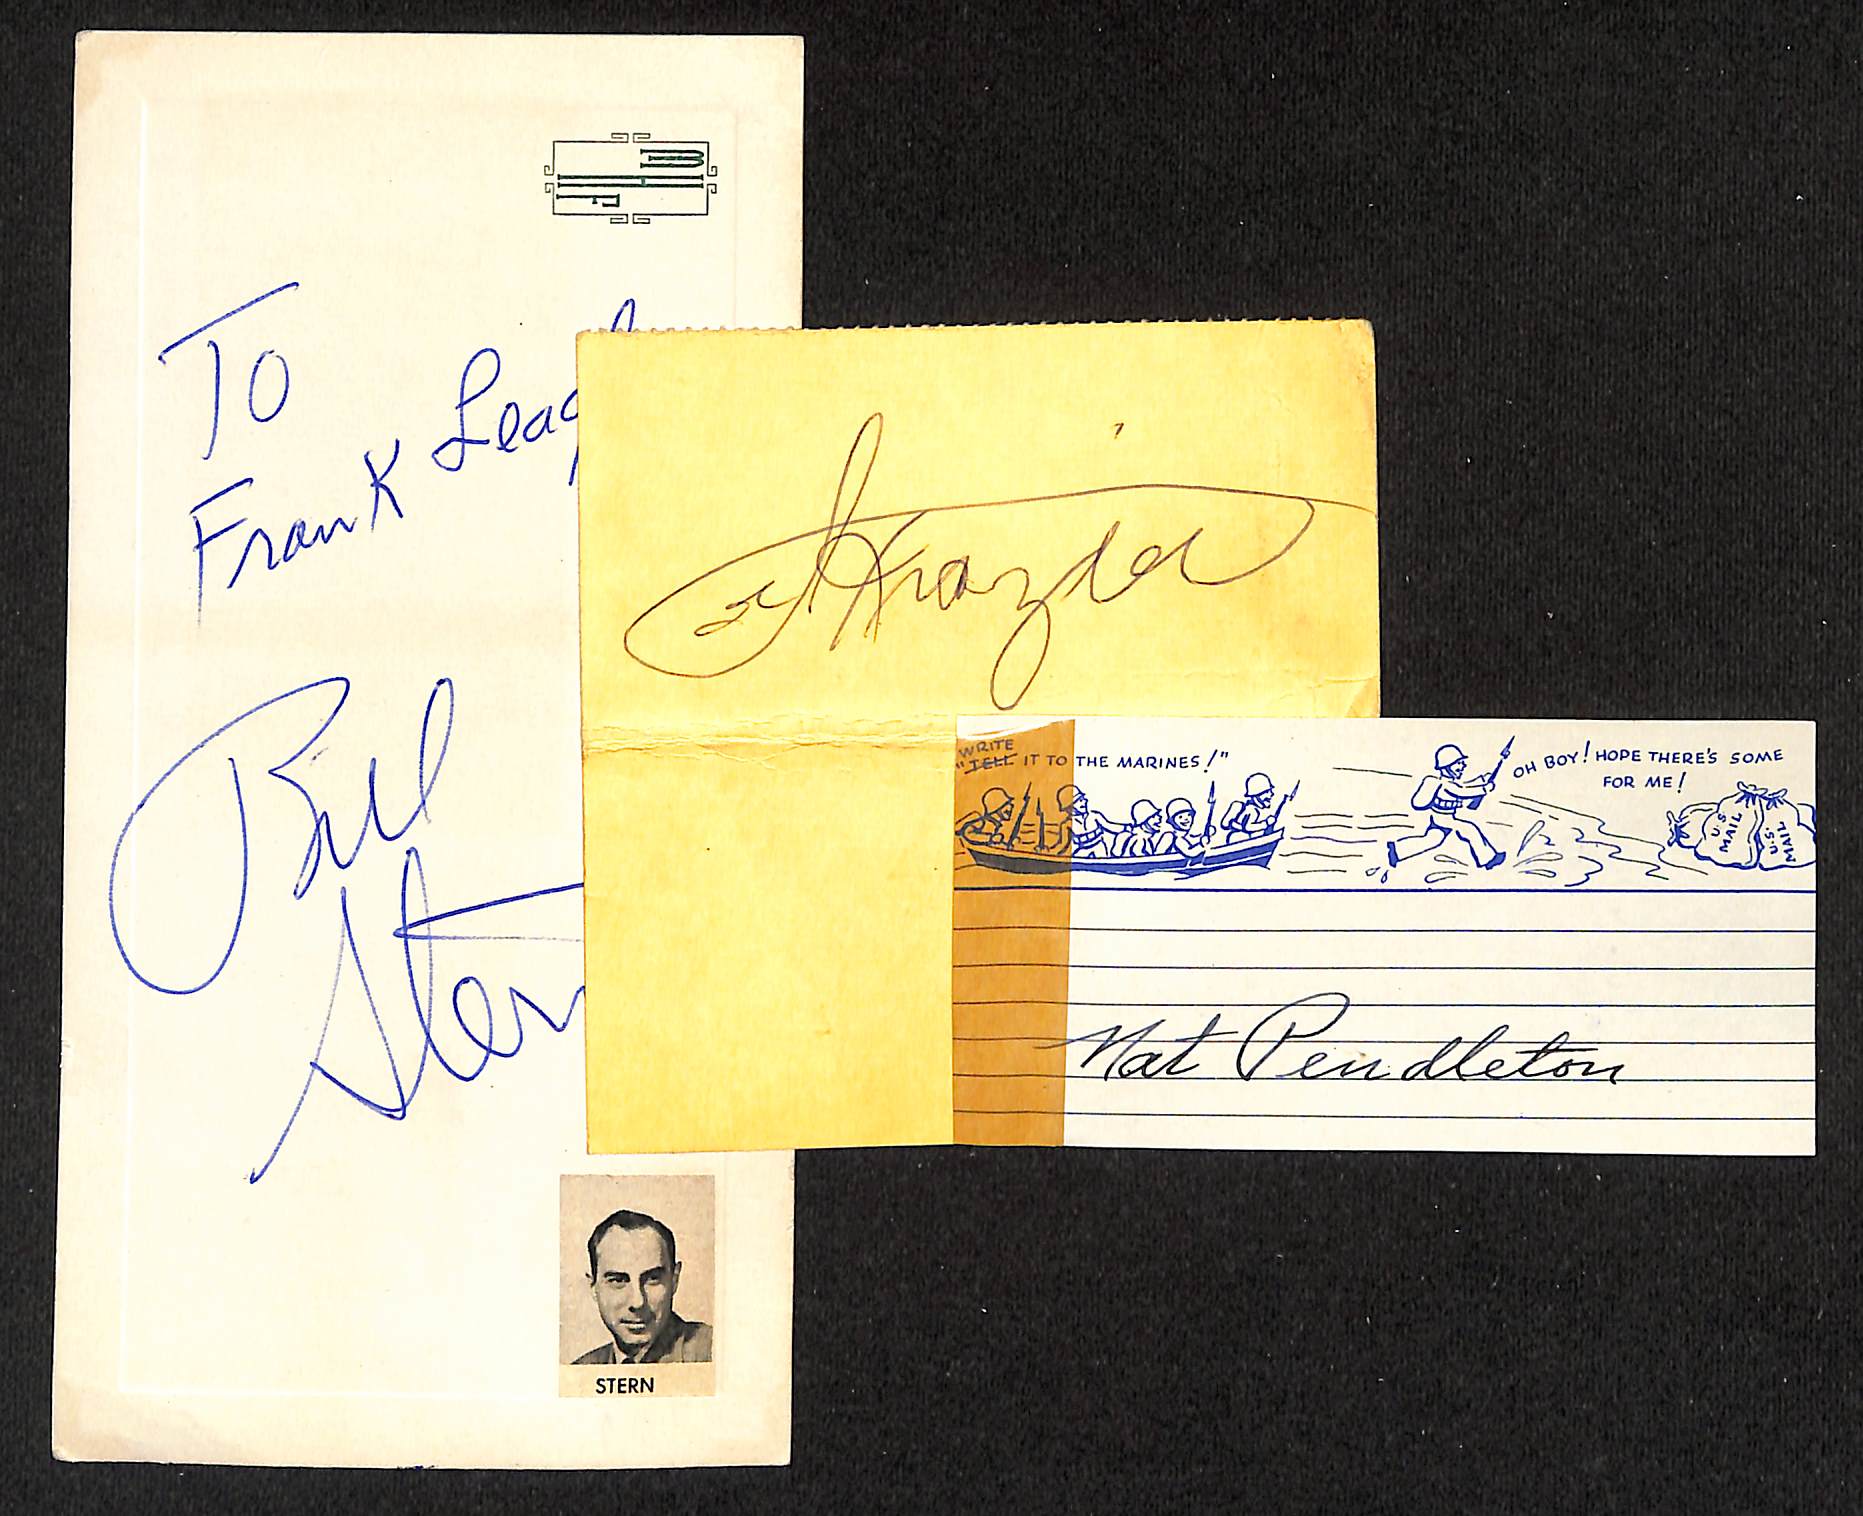 To
Frank Leag
Bill
Stern
STERN
Frazier
WRITE
"TELL IT TO THE MARINES!"
OH BOY! HOPE THERE'S SOME
FOR ME!
U.S.
MAIL
U.S.
MAIL
Nat Pendleton